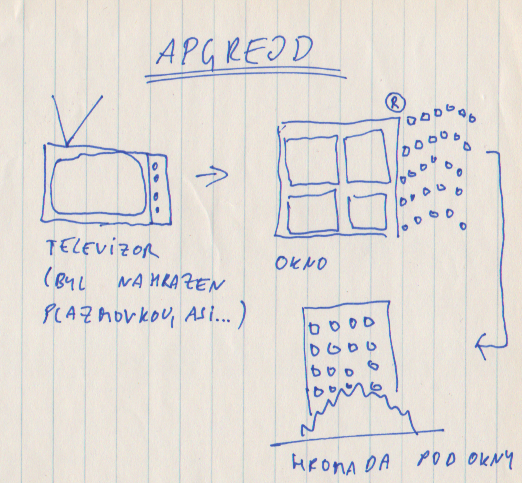 APGREJD
®
TELEVIZOR
(BYL NAHRAZEN
PLAZMOVKOU, ASI...)
OKNO
HROMADA POD OKNY